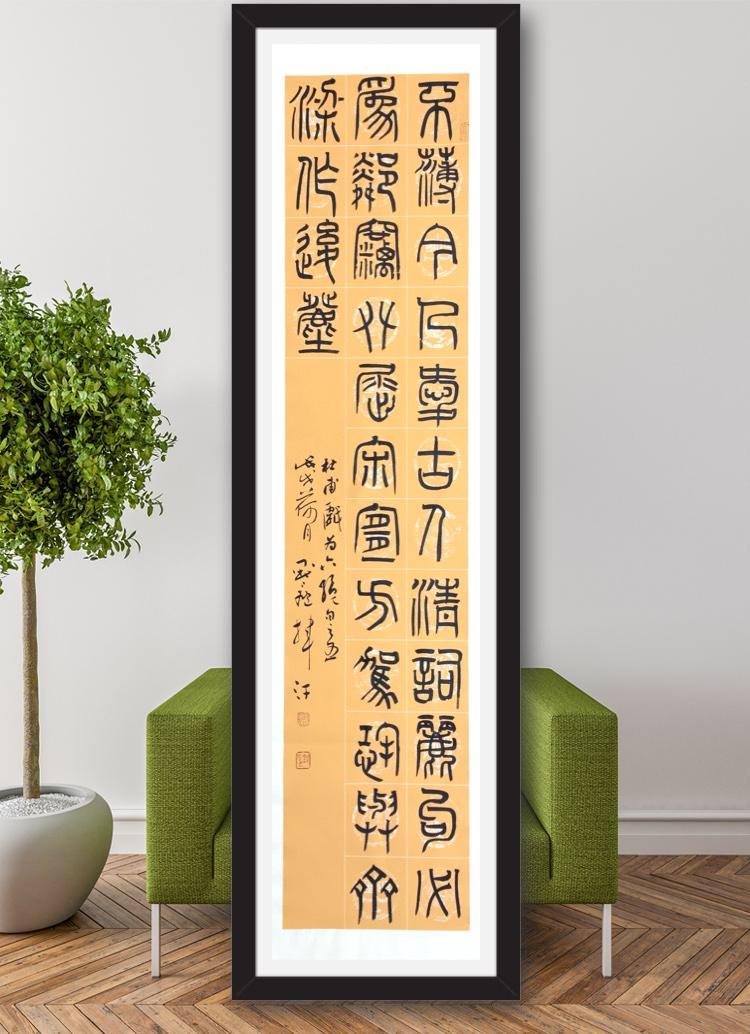 不薄今人愛古人清詞麗句必
為鄰竊攀屈宋宜方駕恐與齊
梁作後塵
杜甫戲為六絕句之五
戊戌荷月揮汗